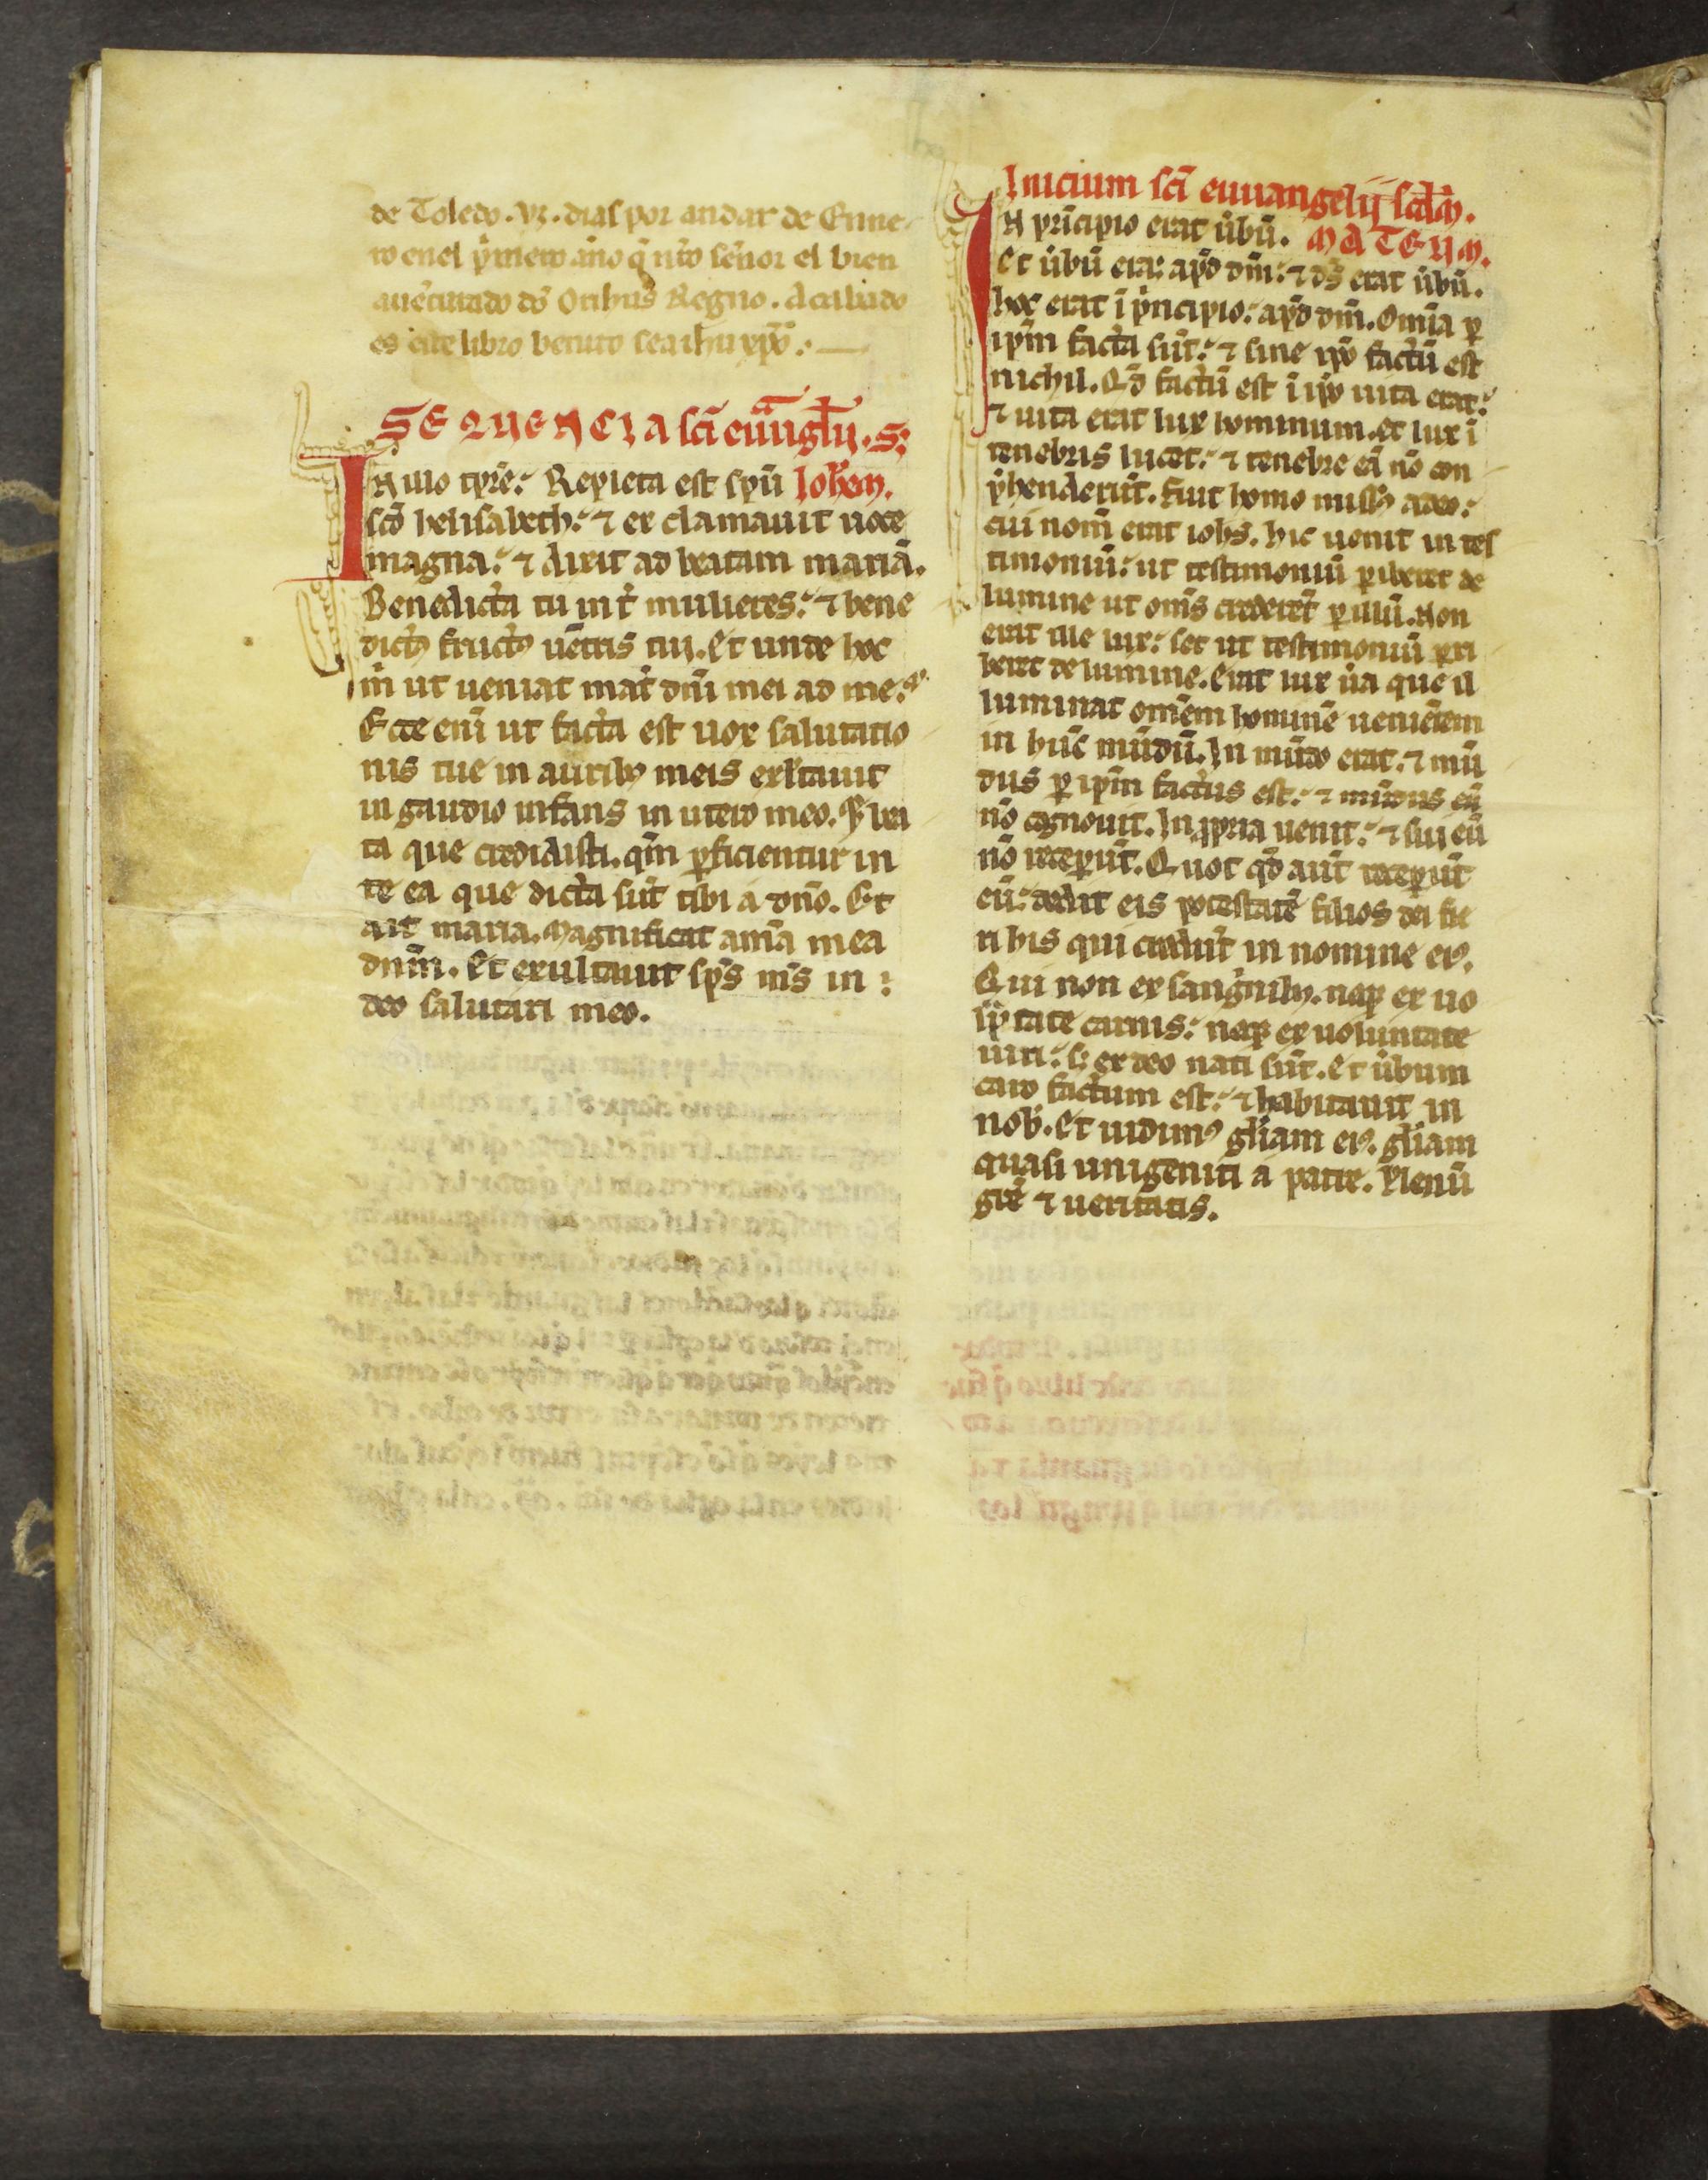 de Toledo. vȷ. dias por andar de Enne
ro enel p̃mero año q̃ nr̃o señor el bien
auẽturado dõ Oribus Regno. Acabado
es este libro benito sea ihu xp̃o.
SEQUENCIA sc̃i euãnglij. S:
IN illo tp̃re: Repleta est sp̃u Johem̃.
sc̃o helisabeth: ⁊ ex clamauit uoce
magna: ⁊ dixit ad beatam mariã.
Benedicta tu int̃ mulieres: ⁊ bene
dictꝰ fructꝰ uẽtris tui. Et unde hoc
m̃ ut ueniat mat̃ dñi mei ad me:
Ecce eni ut facta est uox salutatio
nis tue in auribꝰ meis exltauit
in gaudio infans in utero meo. ⁊ bea
ta que credidisti. qm̃ ꝑficientur in
te ea que dicta sũt tibi a dño. Et
ait maria. Magnificat anĩa mea
dnm̃. Et exultauit sp̃s ms̃ in :
deo salutari meo.
Inicium sc̃i euuangelij scd̃m.
IN prĩcipio erat ũbũ. MATEUM.
Et ũbũ erat apd̃ dm̃: ⁊ ds̃ erat ũbũ.
hoc erat ĩ p̃ncipio: apd̃ dm̃. Omĩa ꝑ
ipm̃ facta sũt: ⁊ sine ipo factũ est
nichil. Qd̃ factũ est ĩ ipo uita erat:
⁊ uita erat lux hominum. Et lux ĩ
tenebris lucet: ⁊ tenebre eã nõ con
p̃henderũt. Fuit homo missꝰ adeo:
cui nom̃ erat iohs̃. hic uenit in tes
timoniũ: ut testimoniũ ꝑiberet de
lumine ut oms̃ crederẽt ꝑ illũ. Non
erat ille lux: set ut testimoniũ ꝑi
beret de lumine. Erat lux ũa que il
luminat omẽm hominẽ ueniẽtem
in hũc mũdũ. In mũdo erat. ⁊ mũ
dus ꝑ ipm̃ factus est: ⁊ mũdus eũ
nõ cognouit. In ꝓpria uenit: ⁊ sui eũ
nõ receperũt. Quot qd̃ aũt receperũt
eũ: dedit eis potestatẽ filios dei fie
ri his qui credũt in nomine eiꝰ.
Qui non ex sang̃nibꝰ. neqꝫ ex uo
lp̃tate carnis: neqꝫ ex uoluntate
uiri: s; ex deo nati sũt. Et ũbum
caro factum est: ⁊ habitauit in
nob̃. Et uidimꝰ gl̃iam eiꝰ. gl̃iam
quasi unigeniti a patre. Plenũ
grẽ ⁊ ueritatis.